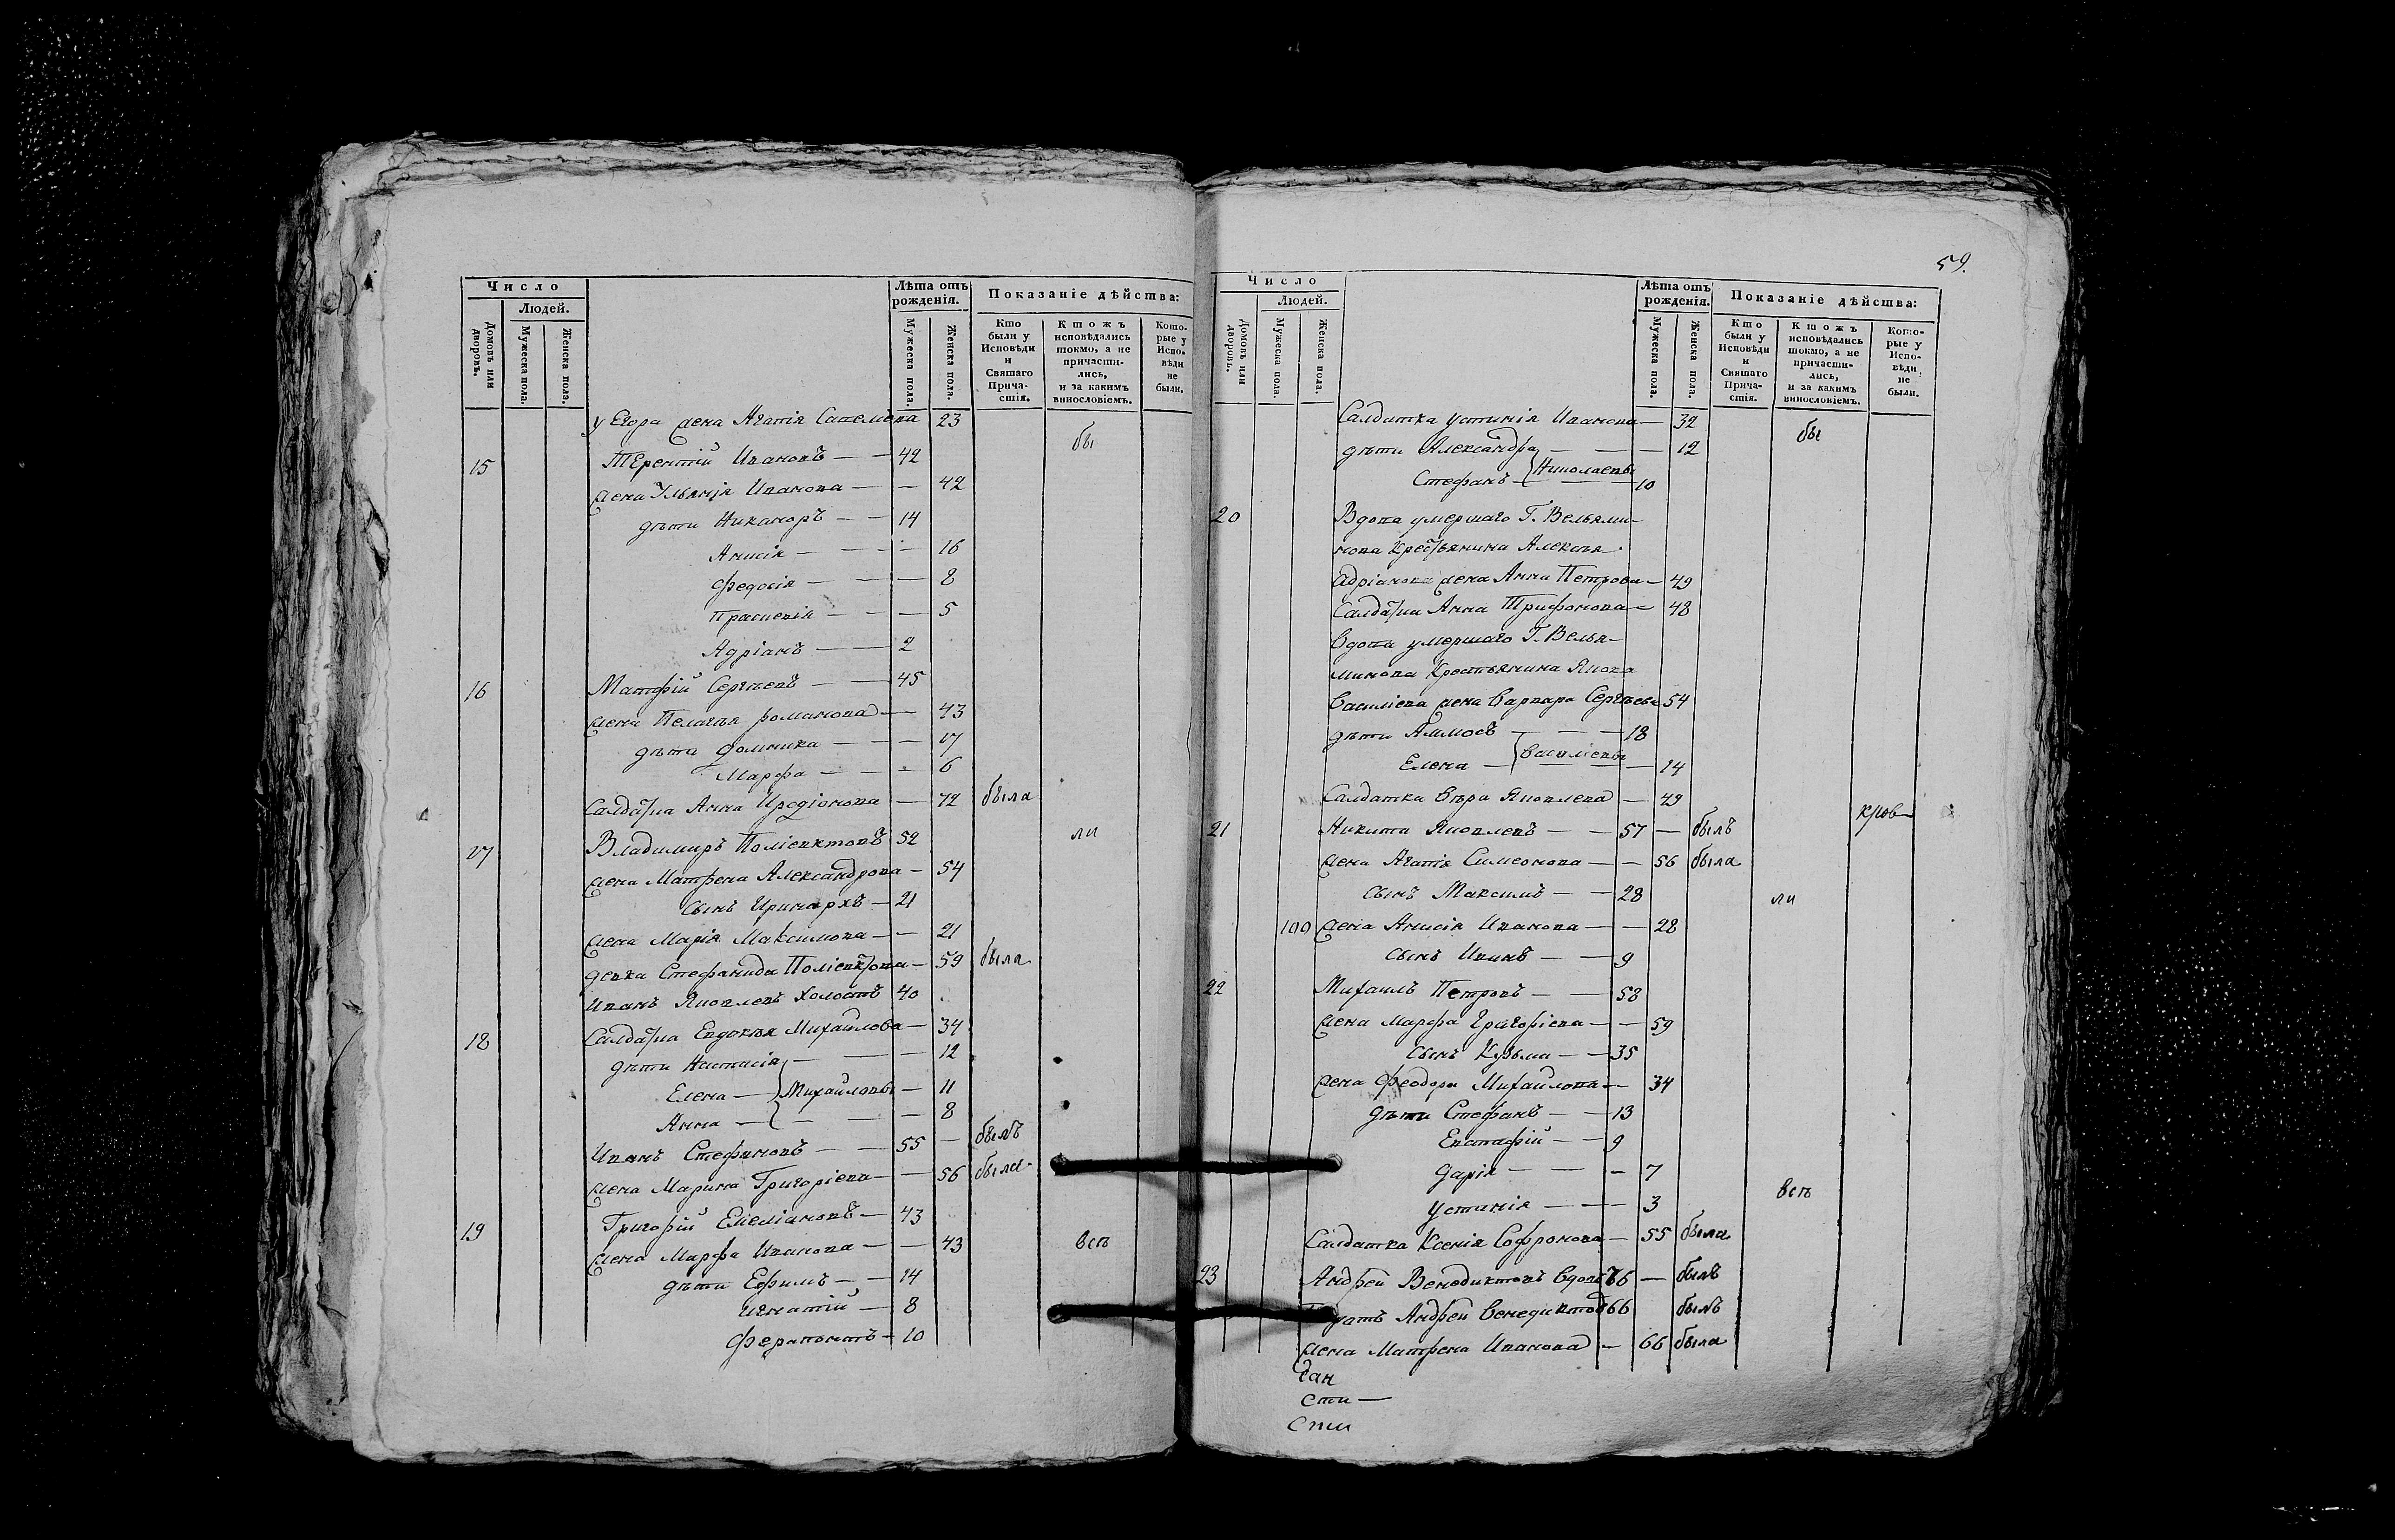 Число
Людей.
Домовъ или дворовъ.
Мужеска пола.
Женска пола.
Лѣта отъ рожденія.
Мужеска пола.
Женска пола.
Показаніе дѣйства:
Кто были у Исповѣди и Святаго Прича-стія.
Ктожъ исповѣдались токмо, а не причасти-лись, и за какимъ винословіемъ.
Кото-рые у Испо-вѣди не были.
у Егора жена Агапія Савелиева 23
бы
15 Терентій Ивановъ — — 42
жена Ульянія Иванова — — 42
дѣти Никаноръ — — 14
Анисія — — — 16
Федосія — — — 8
Праскевія — — — 5
Адріанъ — — 2
16 Матфій Сергѣевъ — — 45
жена Пелагѣя романова — — 43
дѣти Домника — — — 17
Марфа — — — 6
Салдатка Анна Иродіонова — 72 была
ли
17 Владимиръ Поліевктовъ 52
жена Матрена Александрова — 54
сынъ Иринархъ — 21
жена Марія Максимова — — 21
девка Стефанида Поліевктова — 59 была
Иванъ Яковлевъ холостъ 40
18 Салдатка Евдокѣя Михайлова — 34
дѣти Настасія — — — 12
Елена — Михайловы — 11
Анна — — — — 8
Иванъ Стефановъ — — 55 — былъ
жена Марина Григоріева — — 56 была
19 Григорій Емеліановъ — 43
жена Марфа Иванова — — 43
всѣ
дѣти Ефимъ — — 14
игнатій — 8
Ферапонтъ — 10
59.
Число
Людей.
Домовъ или дворовъ.
Мужеска пола.
Женска пола.
Лѣта отъ рожденія.
Мужеска пола.
Женска пола.
Показаніе дѣйства:
Кто были у Исповѣди и Святаго Прича-стія.
Ктожъ исповѣдались токмо, а не причасти-лись, и за какимъ винословіемъ.
Кото-рые у Испо-вѣди не были.
Салдатка устинія Иванова — 32
бы
дѣти Александра — — — 12
Стефанъ — Николаевы 10
20 Вдова умершаго Г. Вельями-
нова Крестьянина Алексѣя
Адріанова жена Анна Петрова — 49
Салдатка Анна Трифонова — 48
вдова умершаго Г. Велья-
минова Крестьянина Якова
василіева жена варвара Сергѣева 54
дѣти Аммосъ — — — 18
Елена — василіевы — 14
Салдатка вѣра Яковлева — 49
21 Никита Яковлевъ — — 57 — былъ
жена Агапія Симеонова — — 56 была
сынъ Максимъ — — 28
ли
100 жена Анисія Иванова — — 28
сынъ Иванъ — — 9
22 Михаилъ Петровъ — — 58
жена Марфа Григоріева — — 59
сынъ Кузьма — — 35
жена Феодора Михайлова — 34
дѣти Стефанъ — — 13
Евстафій — — 9
Дарія — — — 7
всѣ
устинія — — — 3
Салдатка Ксенія Софронова — 55 была
23 Андрей Венедиктовъ вдовъ 66 — былъ
Андрей венедиктов 66 былъ
жена Матрена Иванова — 66 была
сти —